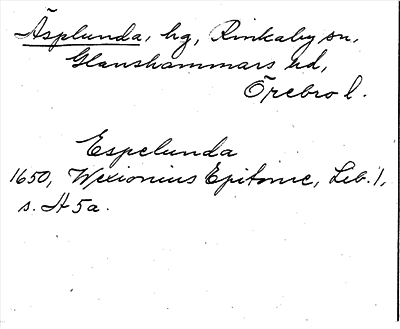 Äsplunda, hg, Rinkaby sn,
Glanshammars hd,
Örebro l.
Espelunda
1650, Wexionius Epitome, Lib. 1,
s. H 5a.